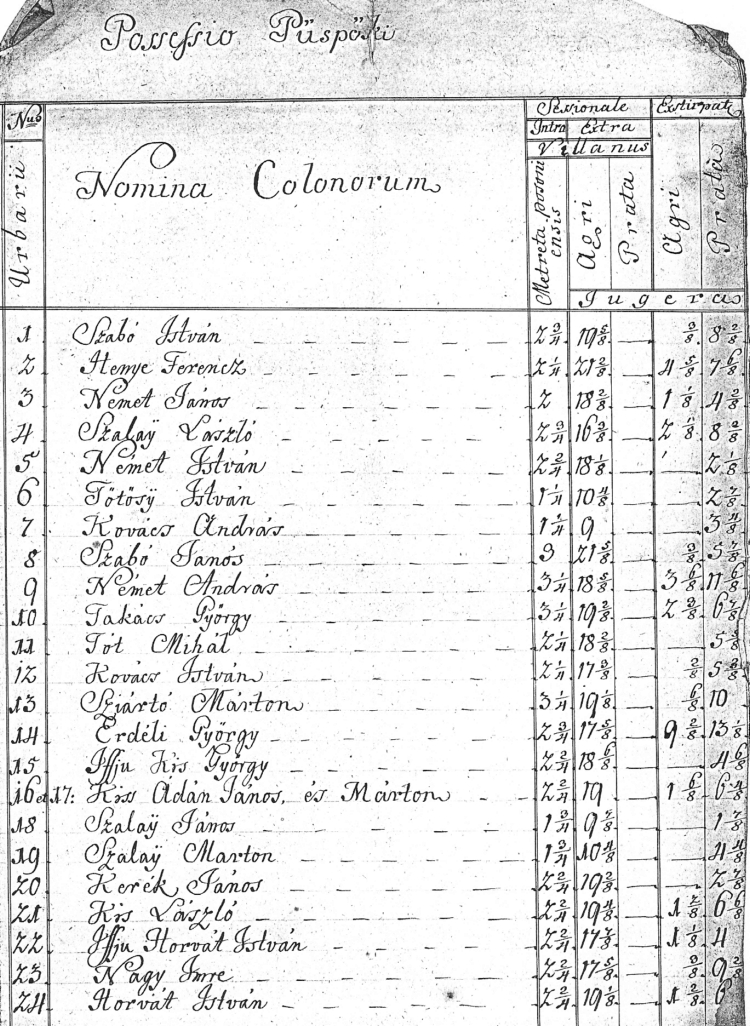 Possessio Püspöki
Nus Urbarii
Nomina Colonorum
Sessionale Extirpat
Intra Extra
Villanus
Metreta posoni ensis
Agri Prata Agri Prata
Jugeras
1 Szabó István 2 3/4 19 5/8 — 3/8 8 2/8
2 Henye Ferencz 2 1/4 21 2/8 — 4 5/8 7 6/8
3 Német János 2 18 2/8 — 1 1/8 4 2/8
4 Szalaÿ László 2 3/4 16 3/8 — 2 1/8 8 2/8
5 Német István 2 2/4 18 1/8 — 2 1/8
6 Tötösÿ István 1 1/4 10 4/8 — — 2 7/8
7 Kovács András 1 1/4 9 — — 3 4/8
8 Szabó Janós 3 21 5/8 — 3/8 5 7/8
9 Német András 3 1/4 18 5/8 — 3 6/8 11 6/8
10 Takács György 3 1/4 19 2/8 — 2 3/8 6 7/8
11 Tót Mihál 2 1/4 18 2/8 — — 5 5/8
12 Kovács István 2 1/4 17 3/8 — 2/8 5 3/8
13 Szjártó Márton 3 1/4 19 1/8 — 6/8 10
14 Erdéli György 2 3/4 17 5/8 — 9 2/8 13 1/8
15 Iffju Kis György 2 2/4 18 6/8 — — 4 6/8
16 et 17: Kiss Adán János, és Márton 2 2/4 19 — 1 6/8 6 4/8
18 Szalaÿ János 1 3/4 9 7/8 — — 1 7/8
19 Szalaÿ Marton 1 3/4 10 4/8 — — 4 4/8
20 Kerék János 2 2/4 19 2/8 — — 2 7/8
21 Kis László 2 2/4 19 4/8 — 1 2/8 6 6/8
22 Iffju Horvát István 2 2/4 17 7/8 — 1 1/8 4
23 Nagy Imre 2 2/4 17 5/8 — 3/8 9 2/8
24 Horvát István 2 2/4 19 1/8 — 1 2/8 6